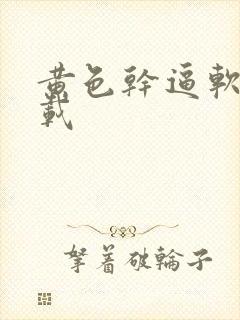 黄色幹逼軟
載
拏着破輪子